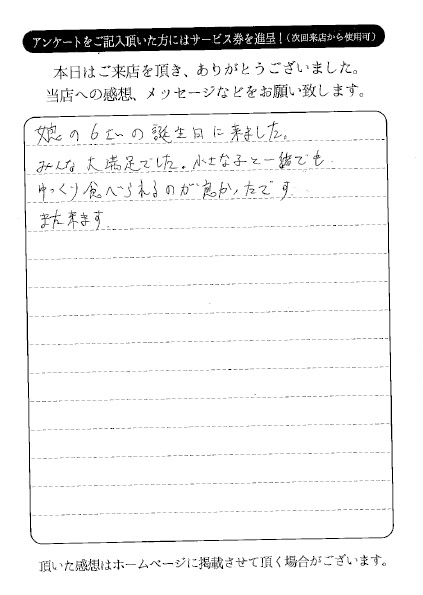 アンケートをご記入頂いた方にはサービス券を進呈！(次回来店から使用可)
本日はご来店を頂き、ありがとうございました。
当店への感想、メッセージなどをお願い致します。
娘の6才の誕生日に来ました。
みんな大満足でした。小さな子と一緒でも
ゆっくり食べられるのが良かったです
また来ます
頂いた感想はホームページに掲載させて頂く場合がございます。